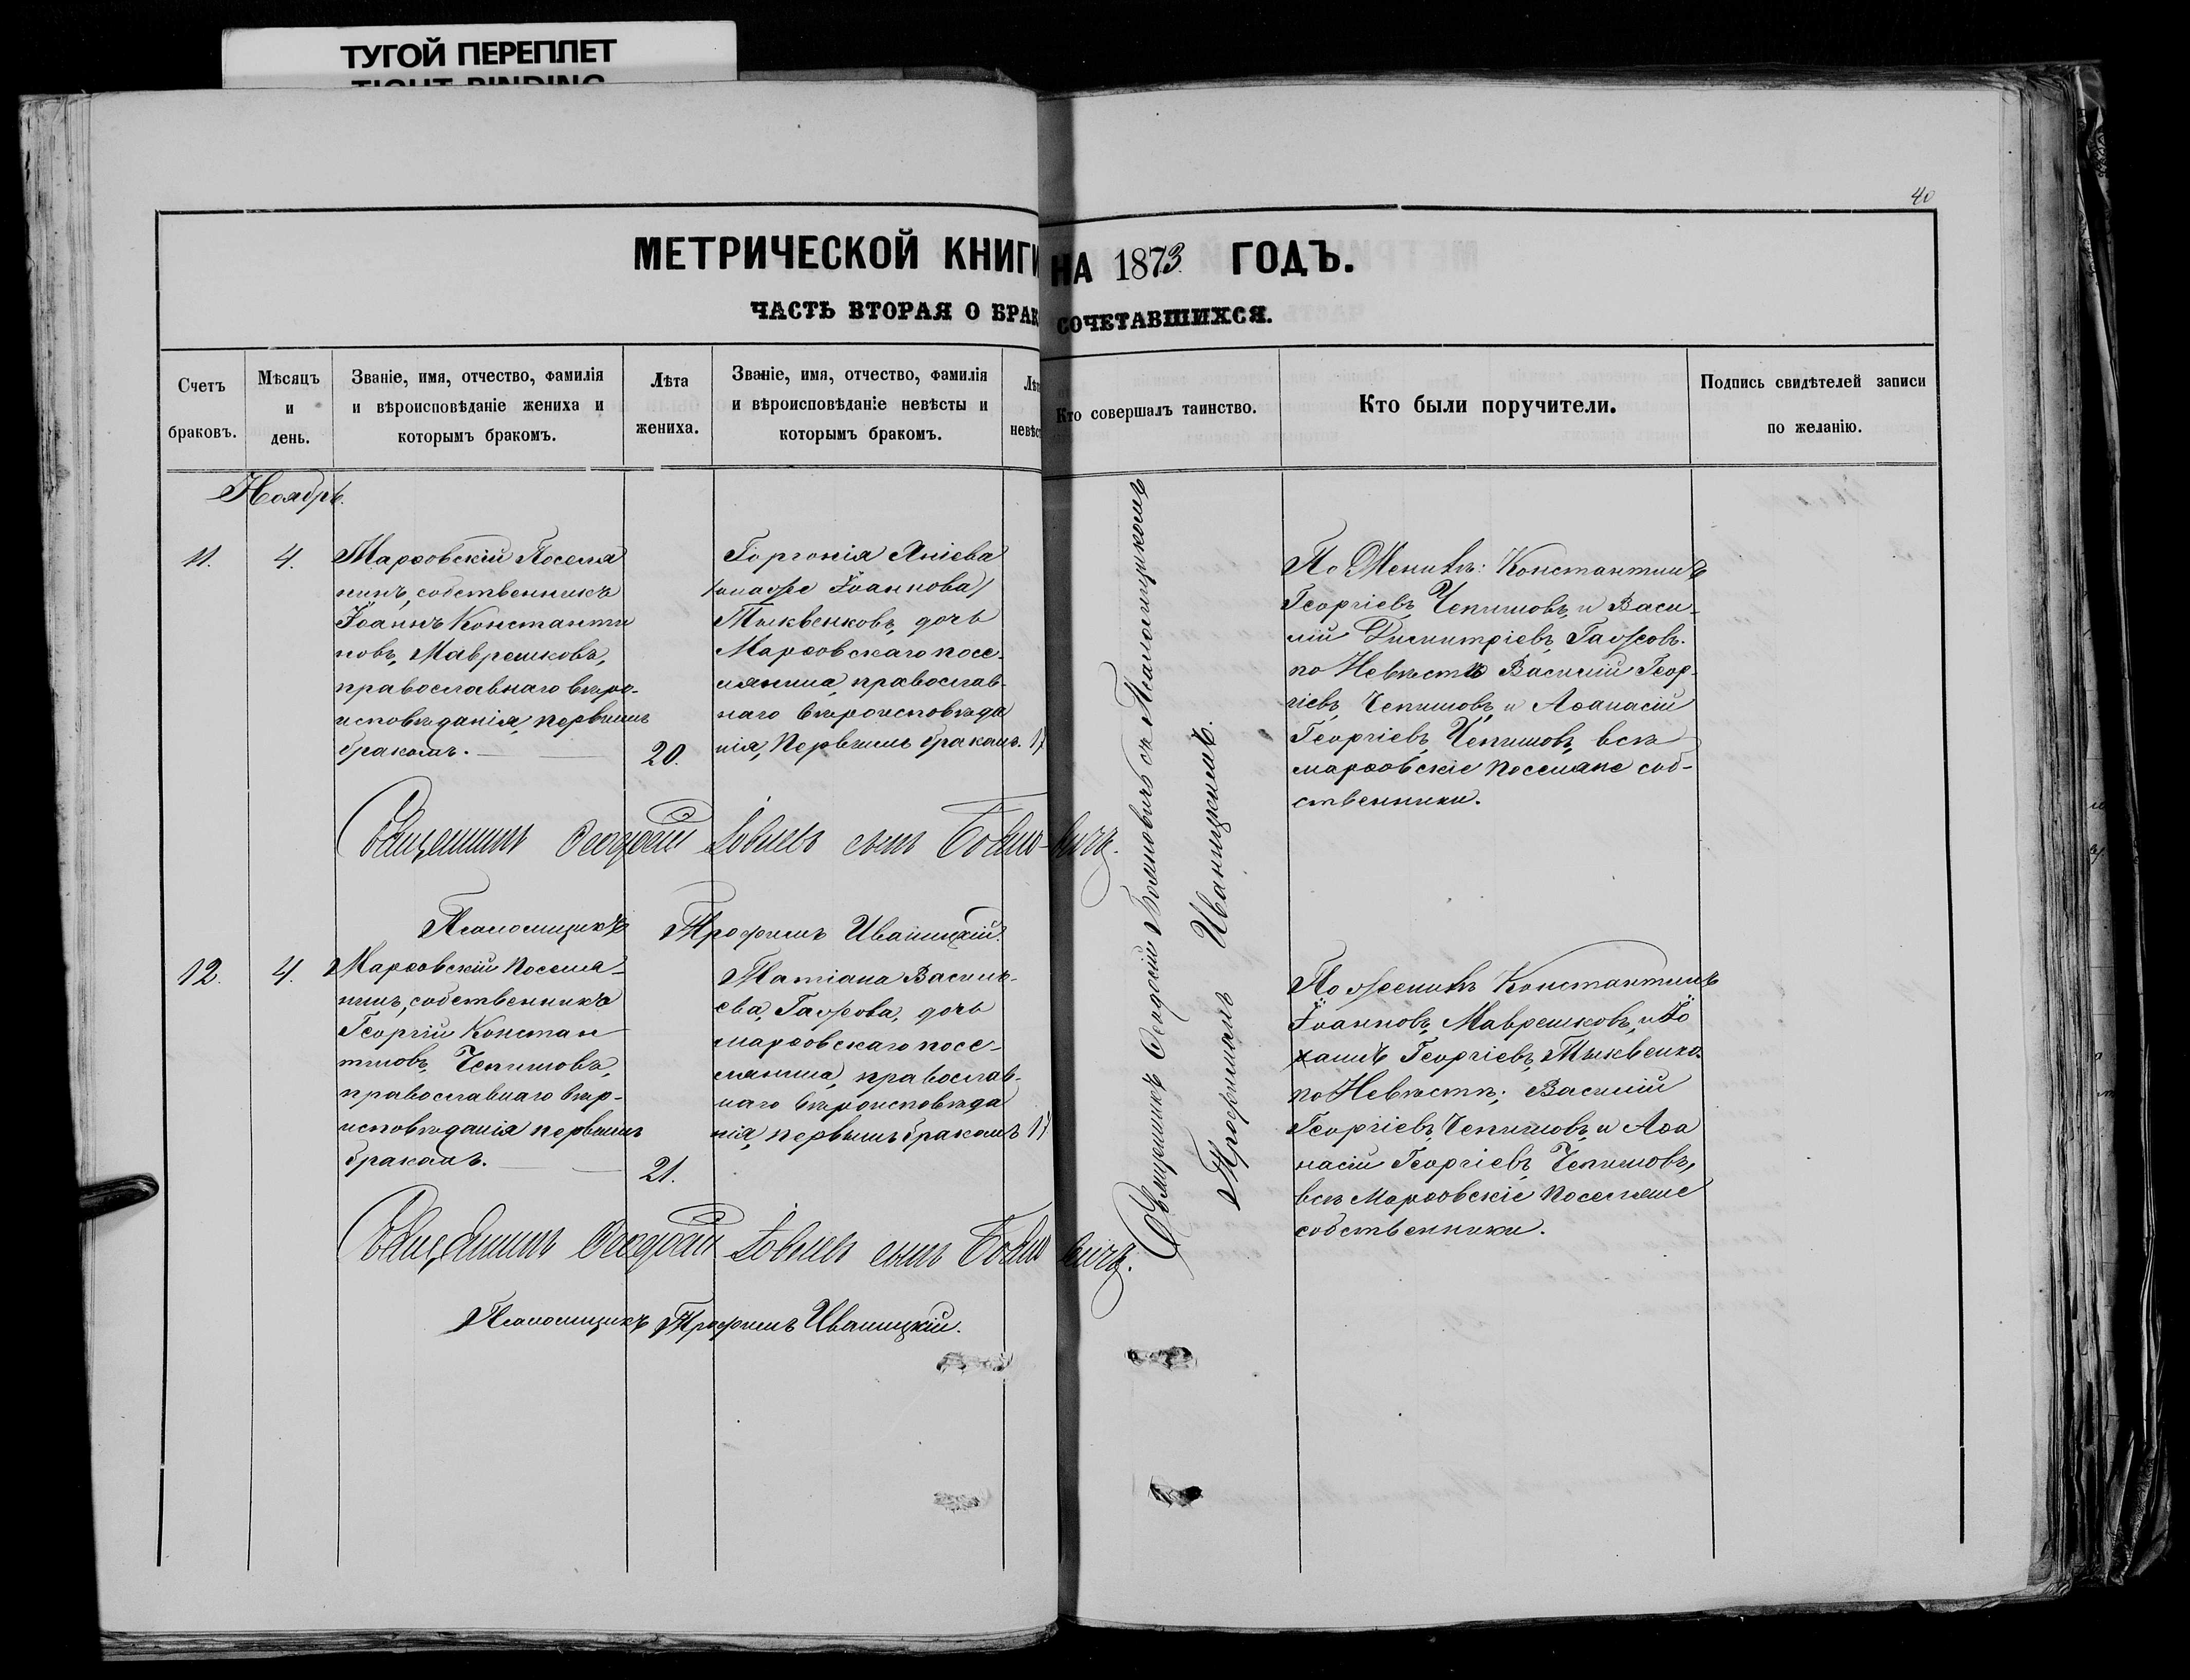 ТУГОЙ ПЕРЕПЛЕТ
TIGHT BINDING
40
МЕТРИЧЕСКОЙ КНИГИ НА 1873 ГОДЪ.
ЧАСТЬ ВТОРАЯ О БРАКОСОЧЕТАВШИХСЯ.
Счетъ
браковъ.
Мѣсяцъ
и
день.
Званіе, имя, отчество, фамилія
и вѣроисповѣданіе жениха и
которымъ бракомъ.
Лѣта
жениха.
Званіе, имя, отчество, фамилія
и вѣроисповѣданіе невѣсты и
которымъ бракомъ.
Кто совершалъ таинство.
Кто были поручители.
Подпись свидѣтелей записи
по желанію.
Ноябрь.
11.
4.
Марѳовскій Поселя
нинъ, собственникъ
Іоаннъ Константи
новъ, Маврешковъ,
православнаго вѣро-
исповѣданія, первымъ
бракомъ.
20.
Горгонія Яніева
/онаже Іоаннова/
Тыквенковъ, дочь
Марѳовскаго посе-
лянина, православ-
наго вѣроисповѣда
нія, первымъ бракомъ. 17
Священникъ Ѳеодосій Божновичъ съ Псаломщикомъ
Трофимомъ Иваницкимъ.
По Женихѣ: Константинъ
Георгіевъ, Чепишовъ, и Васи-
лій Димитріевъ, Гаѵжовъ.
по Невѣстѣ Василій Геор-
гіевъ, Чепишовъ, и Аѳанасій
Георгіевъ, Чепишовъ, всѣ
марѳовскіе поселяне соб-
ственники.
Священникъ Ѳеодосій Іовлевъ сынъ
Псаломщикъ Трофимъ Иваницкій.
12.
4.
Марѳовскій поселя-
нинъ, собственникъ
Георгій Констан
тиновъ, Чепишовъ,
православнаго вѣр-
исповѣданія первымъ
бракомъ.
21.
Татіана Василь-
ева, дочь
марѳовскаго посе-
лянина, православ-
наго вѣроисповѣда
нія, первымъ бракомъ 17
По женихѣ Константинъ
Іоанновъ, Маврешковъ, и Іо
аннъ Георгіевъ, Тыквенко.
по Невѣстѣ; Василій
Георгіевъ, Чепишовъ, и Аѳа
насій Георгіевъ, Чепишовъ,
всѣ Марѳовскіе поселяне
собственники.
Священникъ Ѳеодосій Іовлевъ сынъ
Псаломщикъ Трофимъ Иваницкій.